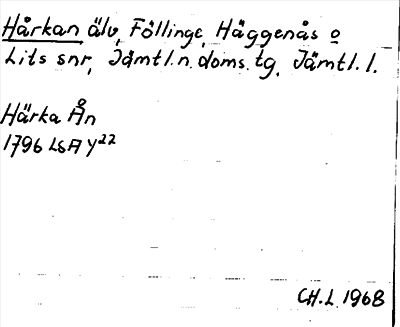 Hårkan älv, Föllinge, Häggenås o
Lits snr, Jämtl.n.doms.tg, Jämtl.l.
Härka Ån
1796 LSA Y22
CH.L 1968